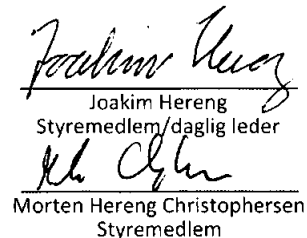 Joakim Hereng
Joakim Hereng
Styremedlem/daglig leder
Morten Hereng Christophersen
Styremedlem